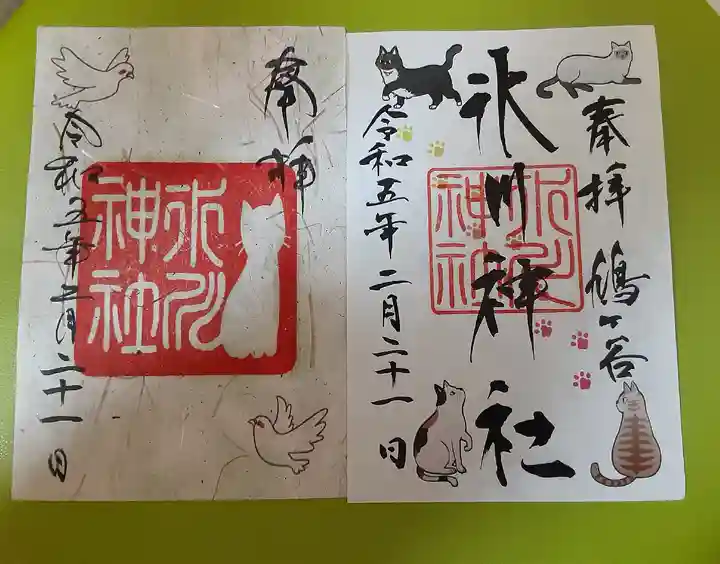 奉拝
氷川
神社
令和五年二月二十一日
奉拝 鳩ヶ谷
氷川神社
氷川
神社
令和五年二月二十一日